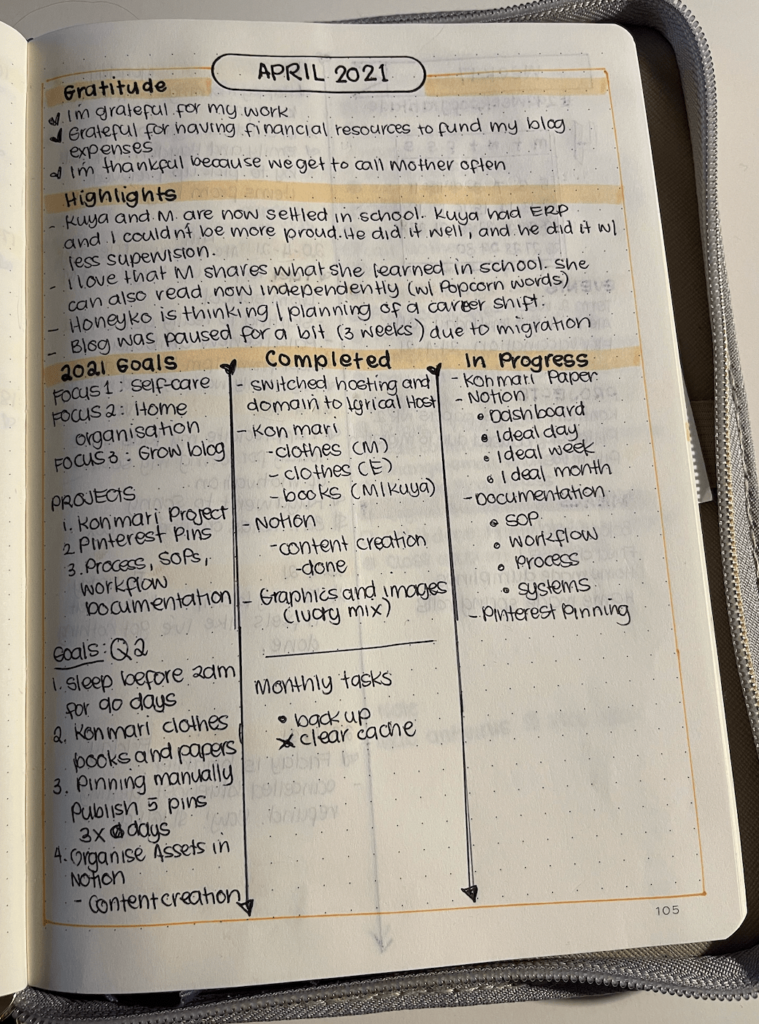 APRIL 2021
Gratitude
Im grateful for my work
Grateful for having financial resources to fund my blog
expenses
Im thankful because we get to call Mother often
Highlights
- Kuya and M are now settled in school. Kuya had ERP
and I couldn't be more proud. He did it well, and he did it w/
less supervision.
- I love that M shares what she learned in school. She
can also read now independently (w/ Popcorn words)
- Honeyko is thinking / planning of a career shift.
- Blog was paused for a bit (3 weeks) due to migration
2021 Goals
FOCUS 1 : Self-care
FOCUS 2 : Home
organisation
FOCUS 3 : Grow blog
PROJECTS
1. Konmari Project
2. Pinterest Pins
3. Process, SOPs,
workflow
Documentation
Goals: Q2
1. Sleep before 2am
for 90 days
2. Konmari clothes
books and papers
3. Pinning manually
Publish 5 pins
3x days
4. Organise Assets in
Notion
- Content creation
Completed
- switched hosting and
domain to Lyrical Host
- Konmari
- clothes (M)
- clothes (E)
- books (M/Kuya)
- Notion
- content creation
- done
- Graphics and images
(Ivory mix)
Monthly tasks
• back up
x clear cache
In Progress
- Konmari Paper
- Notion
• Dashboard
• Ideal day
• Ideal week
• Ideal month
- Documentation
• SOP
• workflow
• Process
• systems
- Pinterest Pinning
105